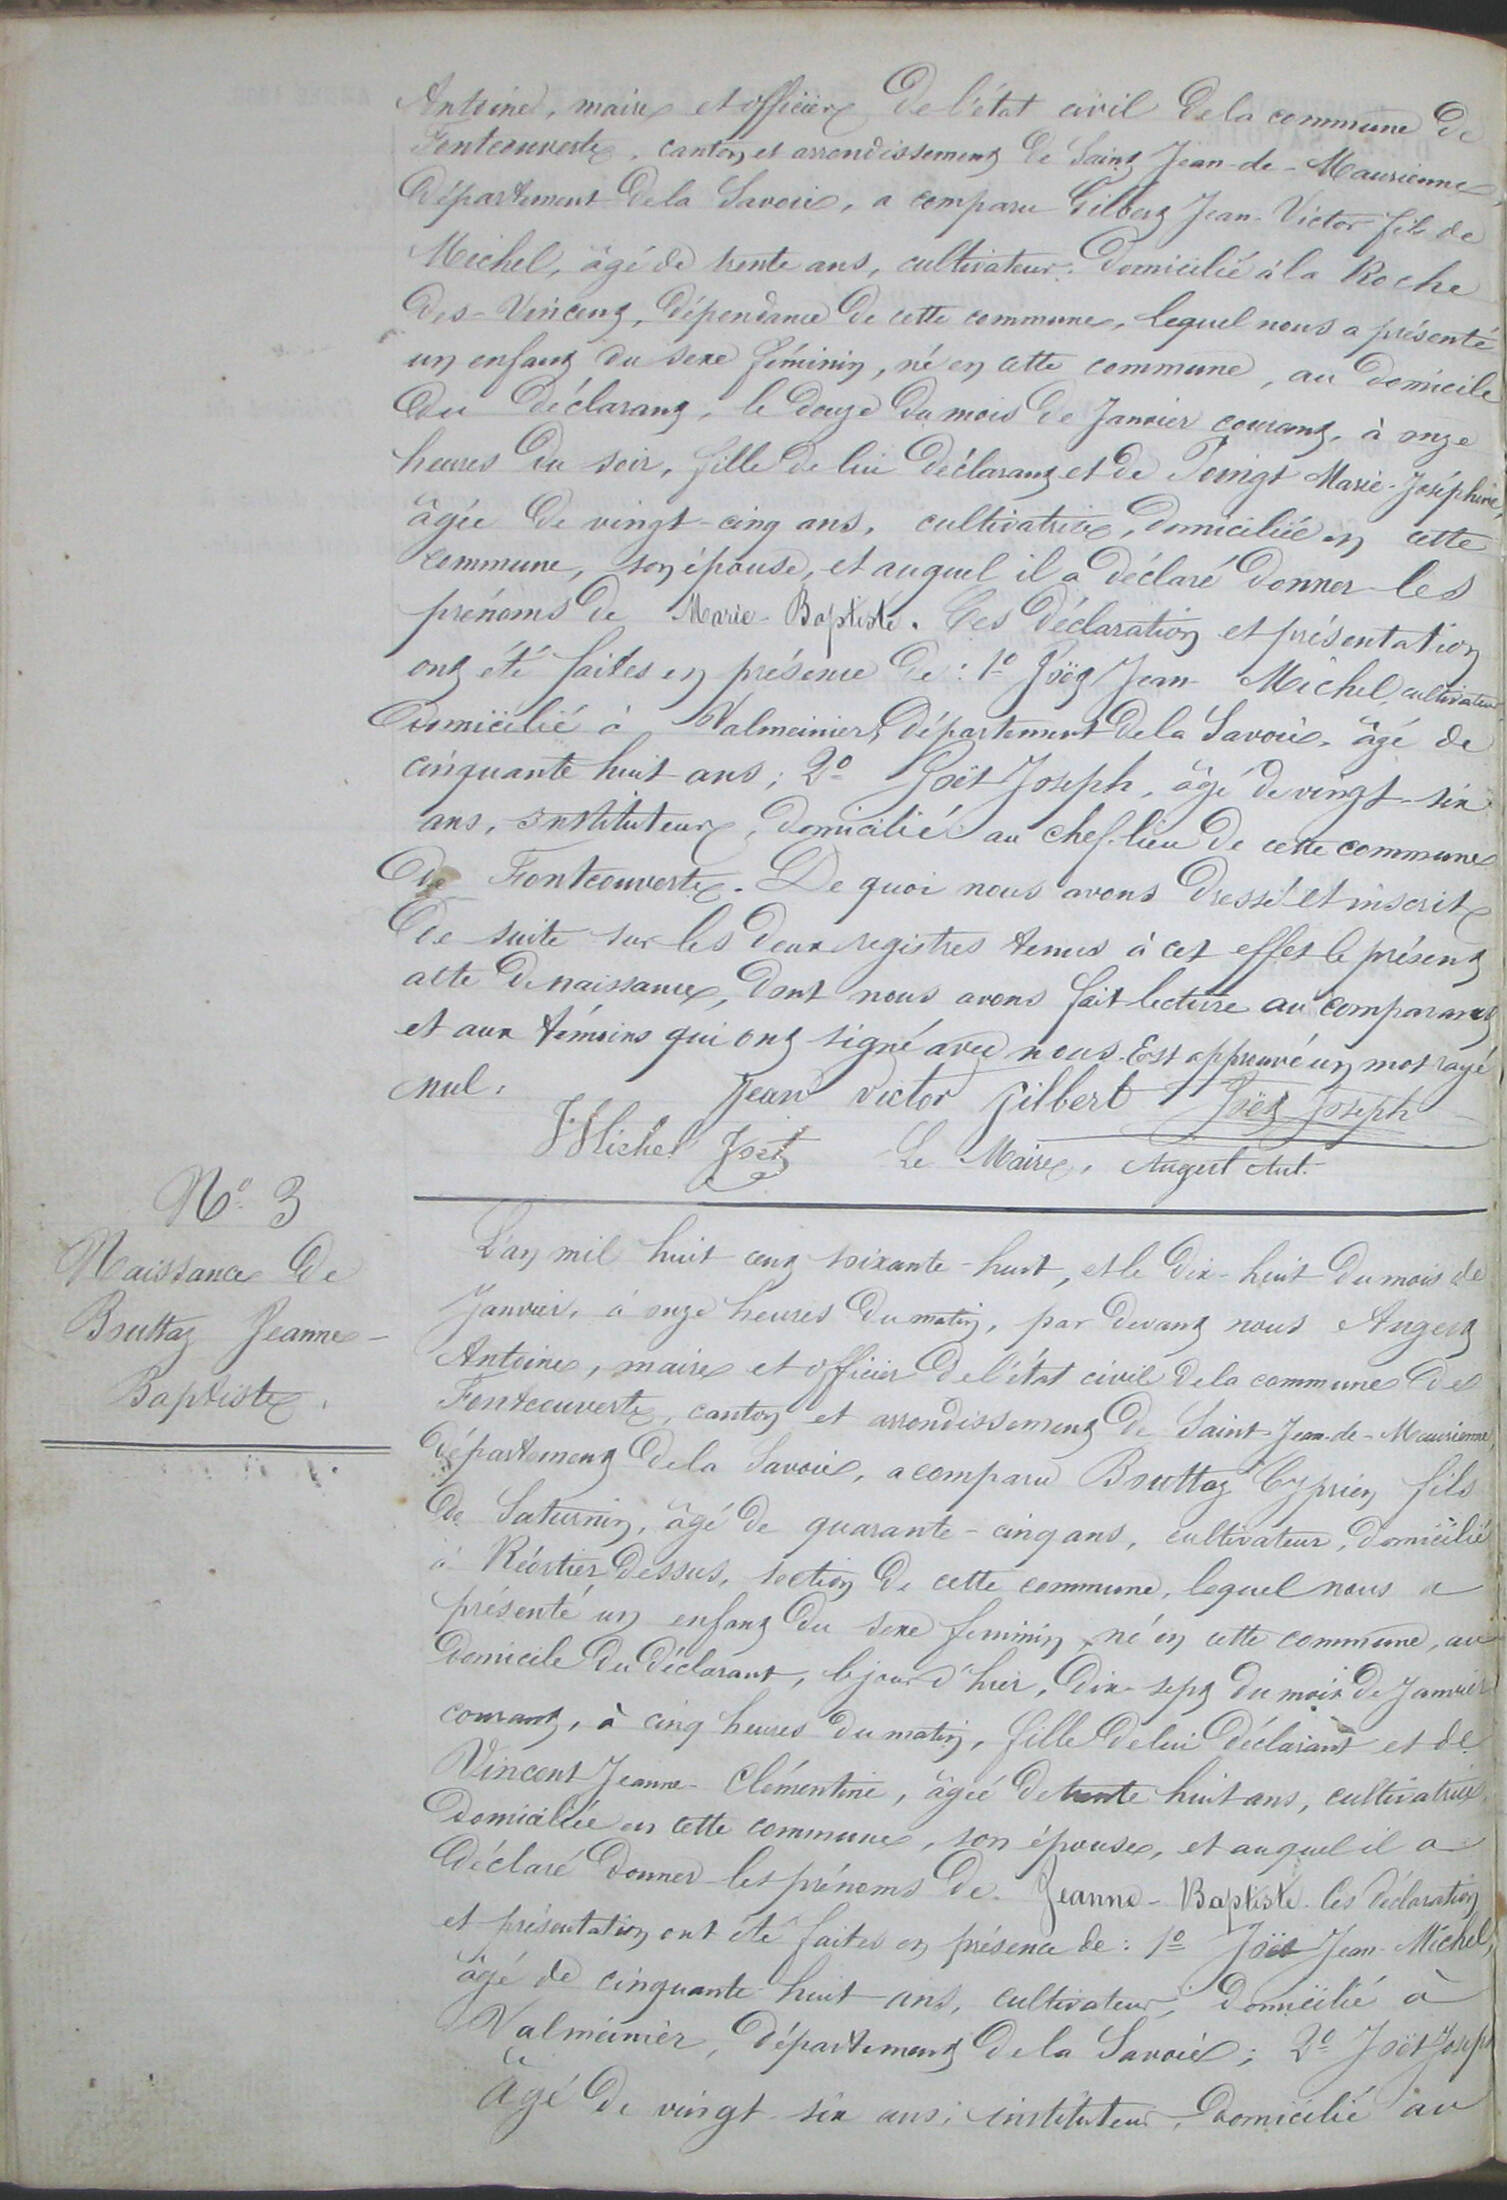 Antoine, maire et officier de l'état civil de la commune de
Fontcouverte, canton et arrondissement de Saint Jean-de-Maurienne,
département de la Savoie, a comparu Gilbert Jean-Victor fils de
Michel, âgé de trente ans, cultivateur, domicilié à la Roche
des-Vincent, dépendance de cette commune, lequel nous a présenté
un enfant du sexe féminin, né en cette commune, au domicile
du déclarant, le douze du mois de Janvier courant, à onze
heures du soir, fille de lui déclarant et de Poingt Marie-Joséphine,
âgée de vingt-cinq ans, cultivatrice, domiciliée en cette
commune, son épouse, et auquel il a déclaré donner les
prénoms de Marie-Baptiste. Ces déclaration et présentation
ont été faites en présence de : 1º Joët Jean-Michel, cultivateur
domicilié à Valmeinier, département de la Savoie, âgé de
cinquante huit ans ; 2º Joët Joseph, âgé de vingt-six
ans, instituteur, domicilié au chef-lieu de cette commune
de Fontcouverte. De quoi nous avons dressé et inscrit
de suite sur les deux registres tenus à cet effet le présent
acte de naissance, dont nous avons fait lecture au comparant
et aux témoins qui ont signé avec nous. Est approuvé un mot rayé
nul.
Jean victor gilbert Joët Joseph
J. Michel Joët Le Maire, Augert Ant.
Nº 3
Naissance de
Bouttaz Jeanne-
Baptiste.
L'an mil huit cent soixante-huit, et le dix-huit du mois de
Janvier, à onze heures du matin, par devant nous Augert
Antoine, maire et officier de l'état civil de la commune de
Fontcouverte, canton et arrondissement de Saint-Jean-de-Maurienne,
département de la Savoie, a comparu Bouttaz Cyprien fils
de Saturnin, âgé de quarante-cinq ans, cultivateur, domicilié
à Réortier dessus, section de cette commune, lequel nous a
présenté un enfant du sexe feminin, né en cette commune, au
domicile du déclarant, le jour d'hier, dix-sept du mois de Janvier
courant, à cinq heures du matin, fille de lui déclarant et de
Vincent Jeanne-Clémentine, âgée de trente huit ans, cultivatrice,
domiciliée en cette commune, son épouse, et auquel il a
déclaré donner les prénoms de Jeanne-Baptiste. Ces déclaration
et présentation ont été faites en présence de : 1º Joët Jean-Michel,
âgé de cinquante huit ans, cultivateur, domicilié à
Valmeinier, département de la Savoie ; 2º Joët Joseph
âgé de vingt six ans, instituteur, domicilié au